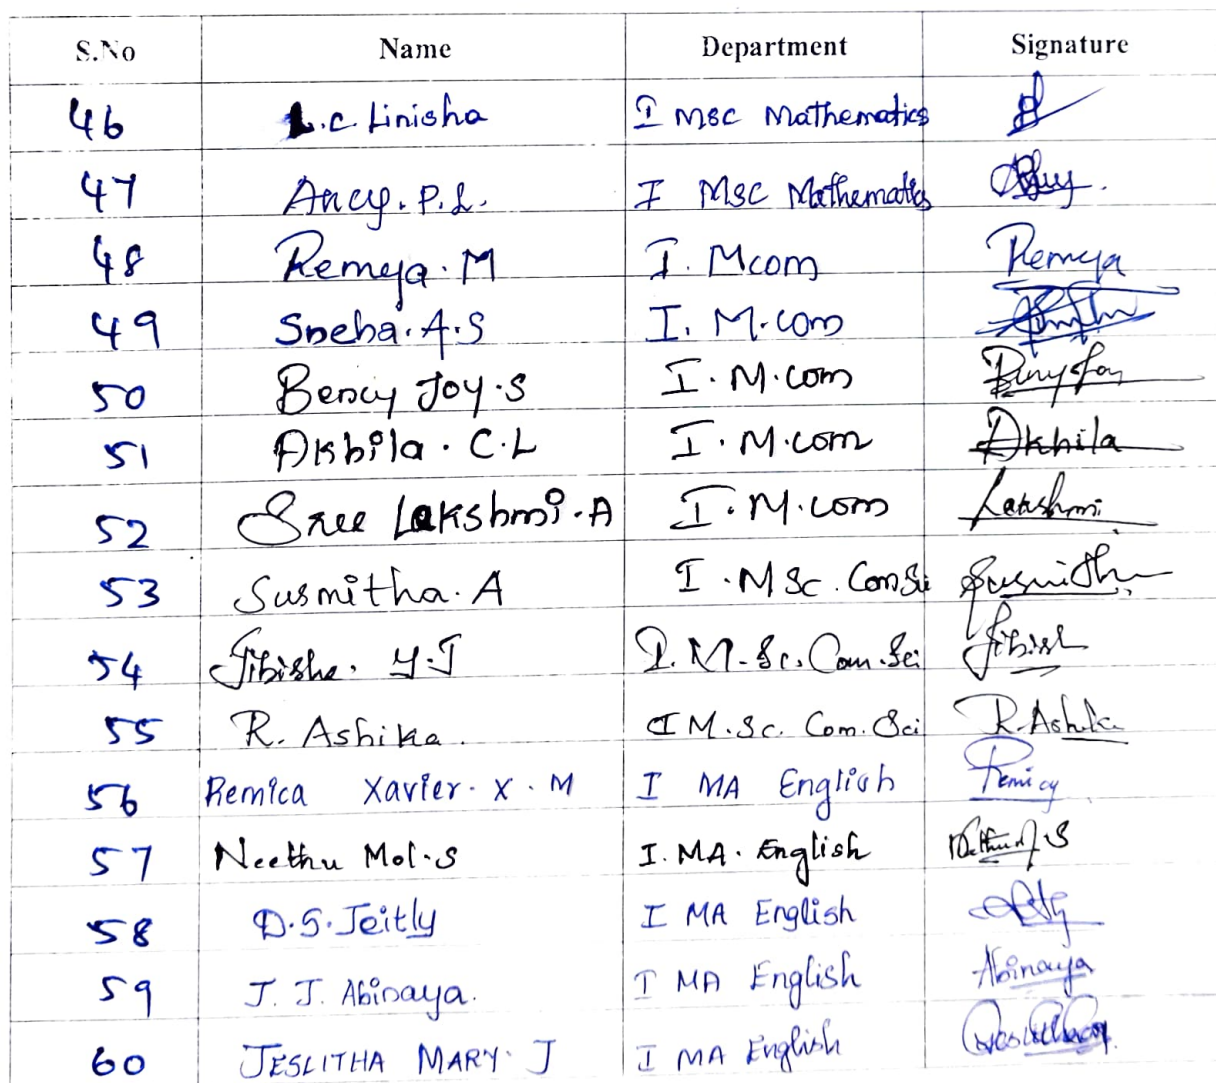 S.No Name Department Signature
46 L.C. Linisha I MSC Mathematics
47 Ancy. P.L. I MSC Mathematics
48 Remya. M I. Mcom Remya
49 Sneha. A.S I. M.com
50 Bency Joy. S I. M.com
51 Akhila. C.L I. M.com Akhila
52 Sree Lakshmi. A I. M.com Lakshmi
53 Susmitha. A I. MSc. Com Sci Susmitha
54 Jibisha. Y.J I. M.Sc. Com. Sci Jibish
55 R. Ashika. I M.Sc. Com. Sci R. Ashika
56 Remica Xavier. X. M I MA English Remicy
57 Neethu Mol. S I. MA. English
58 D.S. Jeitly I MA English
59 J. J. Abinaya. I MA English Abinaya
60 JESLITHA MARY. J I MA English